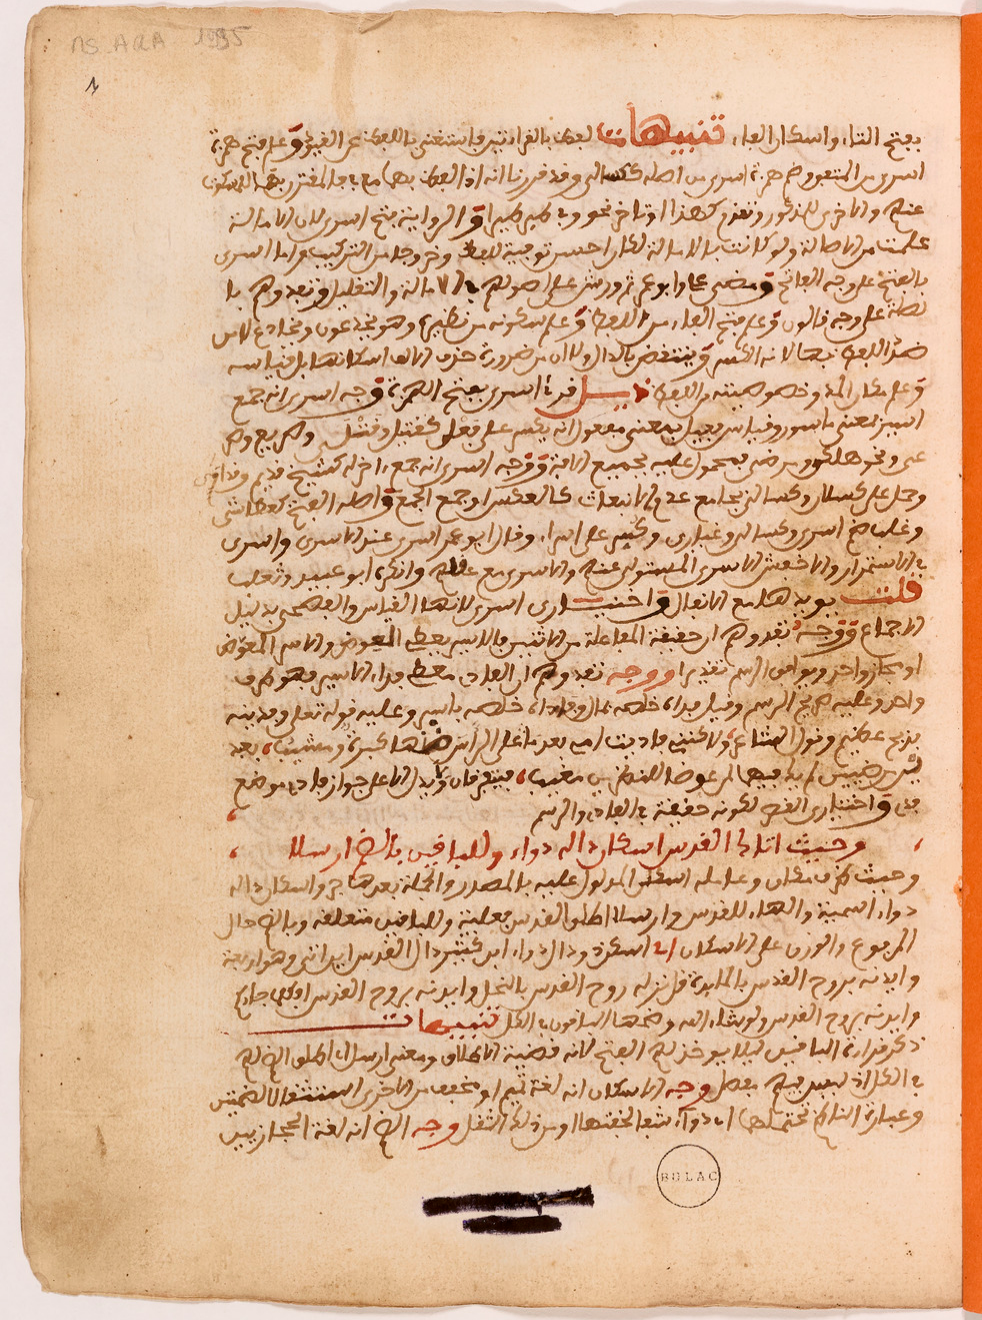 MS.ARA 1995
بفتح التاء واسكان الفاء تنبيهات لفظ بالقراءتين فاستغنى باللفظ عن القيد وعلم فتح همزة
اسرى من المتفق وضم همزة اسرى من اصله كسالى وقد قررنا انه اذا لفظ بهما مع
عنه والاخرى للمذكور وتقدم كهذا او تاخر نحو وفي طير طيرا والرواية بفتح اسرى لان الامالة
علمت من الاصالة ولو كانت بالامالة لكان احسن توجيه للفظ وخروجا من التركيب واما اسرى
بالفتح على وجه الفاتح ومضى حمزة وابو عمرو وورش على اصولهم في الامالة والتقليل وتفدوهم
على وجه قالون وعلم فتح الفاء من اللفظ وعلم سكونه من نظيره وهو يخدعون ويخادع لا من
ضد اللفظ بها لانه الكسر وينتقض بالدال ولا ان من ضرورة حذف الالف اسكانها
وعلم مكان المد وخصوصيته من اللفظ ذيل قرئ اسرى بفتح الهمزة وجه اسرى انه جمع
اسير بمعنى ماسور وقياس فعيل بمعنى مفعول انه يكسر على فعلى كقتيل وقتلى وجريح وجرحى
ونحو هلكى ومرضى محمول عليه بجميع الافة ووجه اسرى انه جمع اخر له كشيخ قديم وقدامى
وحمل على كسلان وكسالى بجامع عدم الانبعاث كالعكس او جمع الجمع واصله الفتح كعطاشى
وغلب ضم اسرى وكسالى وغيارى وكسر على اسراء وقال ابو عمرو اسرى عند الاسرى واسرى
في الاستمرار والاخفش الاسرى المستولى عنه والاسرى مع غلبه وانكره ابو عبيد وثعلب
قلت يويدهما مع الانفال واختياري اسرى لانها القياس والفصحى بدليل
الاجماع ووجه تفدوهم ان حقيقة المفاعلة من الاثنين فالاسير يعطي العوض والاسر المعوض
او مجاز واحد ويوافق الرسم تقديرا ووجه تفدوهم ان الفادي يعطي فداء الاسير فهو طرف
واحد وعليه صريح الرسم وقيل فداه خلصه بمال وفاداه خلصه باسير وعليه قوله تعالى وفديناه
بذبح عظيم وقول الشاعر ولكنني فاديت امي بعدما على الراس منها كبرة ومشيب بعد
مرضيين لم يك فيهما لمن عرضا للناظرين معيب فيتعرفان ويدل الاعلى جواز فادى موضع
فدى واختياري القصر لكونه حقيقة في الفادي والرسم
وحيث اتاك القدس اسكان داله دواء وللباقين بالضم ارسلا
وحيث ظرف مكان وعامله اسكن المدلول عليه بالمصدر والجملة بعدها جر واسكان داله
دواء اسمية والهاء للقدس وارسلا اطلق القدس فعلية وللباقين متعلقه وبالضم حال
المرفوع والوزن على الاسكان اي اسكن ذو دال دواء ابن كثير دال القدس اين اتى وهو اربعة
وايدناه بروح القدس بالمايدة قل نزله روح القدس بالنحل وايدناه بروح القدس افكلما جاءكم
وايدناه بروح القدس ولو شاء الله وضمها الباقون في الكل تنبيهات
ذكر قراءة الباقين ليلا يوخذ لهم الفتح لانه قضية الاطلاق ومعنى ارسلا اطلق الضم لهم
في الكل اذ لم يقيد فيه بفصل وجه الاسكان انه لغة تميم او مخفف من الاخرى استثقالا لضمتين
وعبارة الناظم تحتملهما اي دواء شفاء لخفتها او من ذلك الثقل وجه الضم انه لغة الحجازيين
BULAC